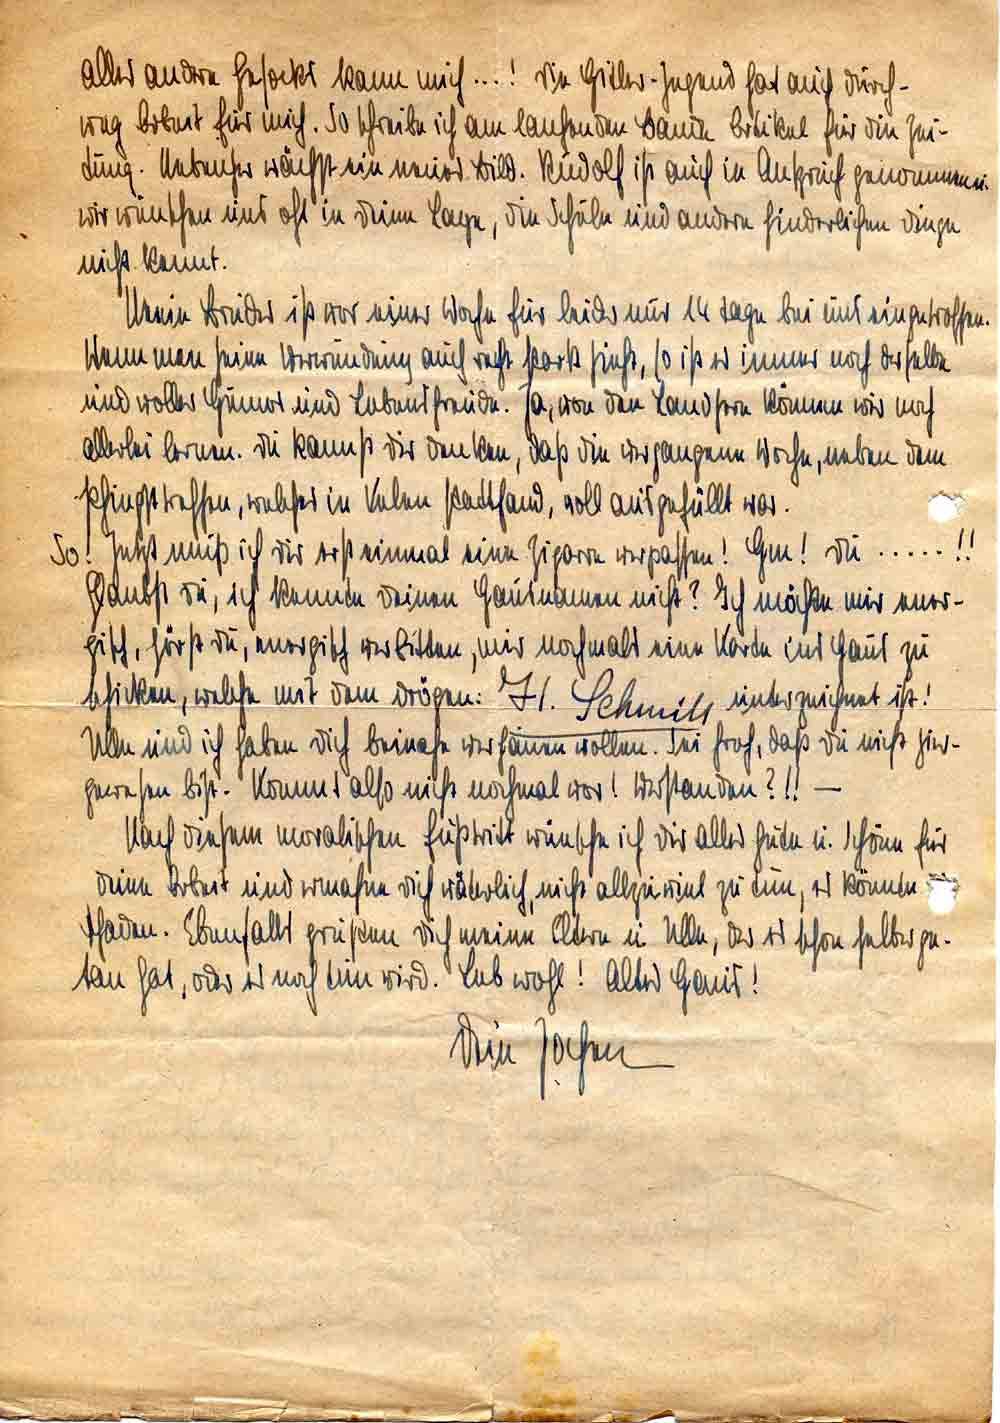 alles andere Gesocks kann mich...! Die Hitler-Jugend hat auch durch-
weg Arbeit für mich. So schreibe ich am laufenden Bande Artikel für die Zei-
tung. Nebenher wächst ein neues Bild. Rudolf ist auch in Anspruch genommen u.
wir wünschen uns oft in deine Lage, die Schule und andere hinderlichen Dinge
nicht kennt.
Mein Bruder ist vor einer Woche für leider nur 14 Tage bei uns eingetroffen.
Wenn man seine Verwundung auch recht stark sieht, so ist er immer noch derselbe
und voller Humor und Lebensfreude. Ja, von den Landsern können wir noch
allerlei lernen. Du kannst dir denken, daß die vergangene Woche, neben dem
Pfingsttreffen, welches in Velen stattfand, voll ausgefüllt war.
So! Jetzt muß ich dir erst einmal eine Zigarre verpassen! Hm! Du .....!!
Glaubst du, ich kennte deinen Hausnamen nicht? Ich möchte mir ener-
gisch, hörst du, energisch verbitten, mir nochmals eine Karte ins Haus zu
schicken, welche mit dem drögen: H. Schmitt unterzeichnet ist!
Ulle und ich haben dich beinahe verhauen wollen. Sei froh, daß du nicht hier-
gewesen bist. Kommt also nicht nochmal vor! Verstanden?!! —
Nach diesem moralischen Fußtritt wünsche ich dir alles Gute u. Schöne für
deine Arbeit und ermahne dich väterlich, nicht allzuviel zu tun, es könnte
schaden. Ebenfalls grüßen dich meine Eltern u. Ulle, der es schon selber ge-
tan hat, oder es noch tun wird. Leb wohl! Altes Haus!
Dein Jochen